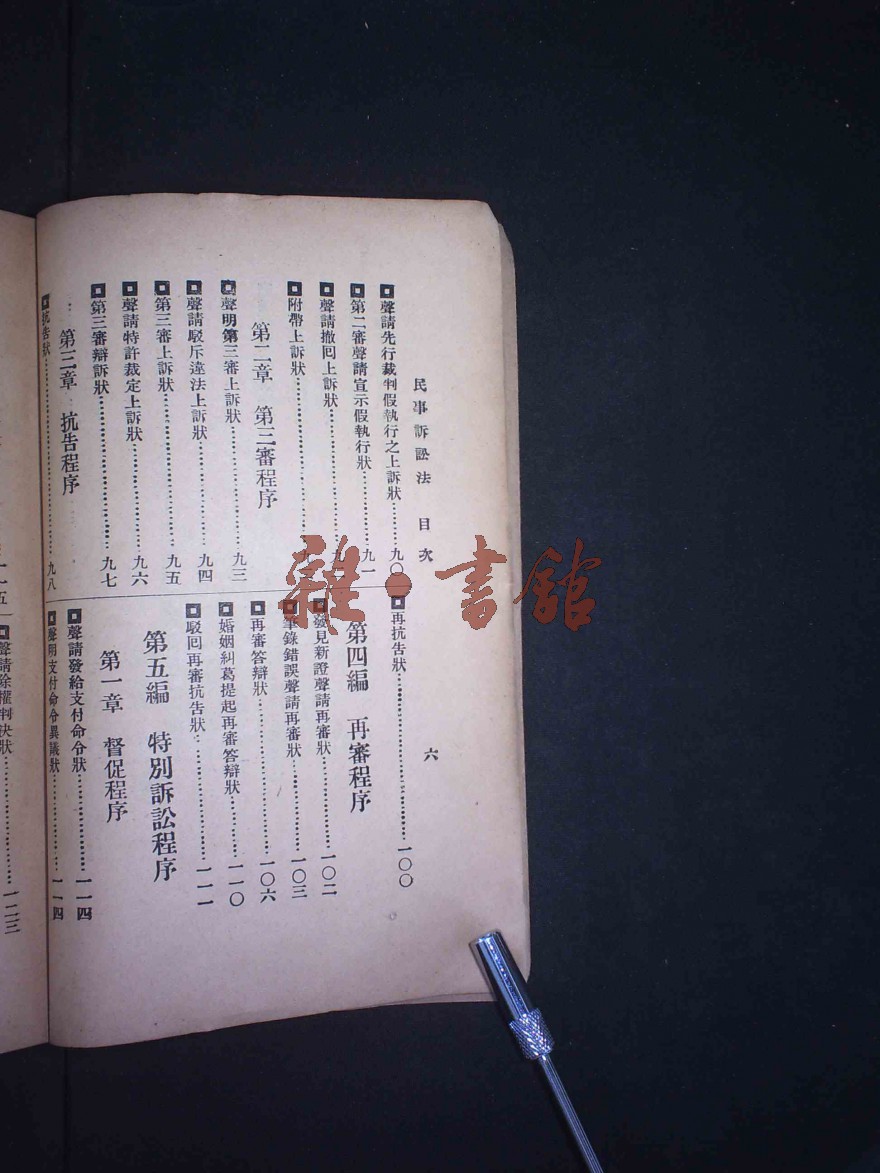 民事訴訟法 目次
六
聲請先行裁判假執行之上訴狀……九〇
第二審聲請宣示假執行狀……九一
聲請撤回上訴狀……九
附帶上訴狀……九
第二章 第三審程序
聲明第三審上訴狀……九三
聲請駁斥違法上訴狀……九四
第三審上訴狀……九五
聲請特許裁定上訴狀……九六
第三審辯訴狀……九七
第三章 抗告程序
抗告狀……九八
再抗告狀……一〇〇
第四編 再審程序
發見新證聲請再審狀……一〇二
筆錄錯誤聲請再審狀……一〇三
再審答辯狀……一〇六
婚姻糾葛提起再審答辯狀……一一〇
駁回再審抗告狀……一一一
第五編 特別訴訟程序
第一章 督促程序
聲請發給支付命令狀……一一四
聲明支付命令異議狀……一一四
一一五
聲請除權判決狀……一二三
雜·書館